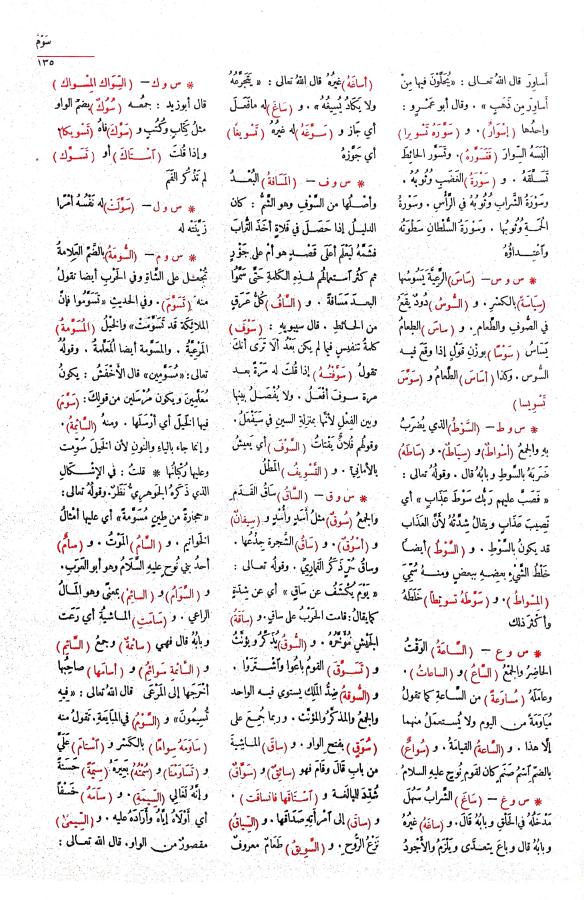 سَوْمٌ
١٣٥
أَسَاوِرَ قال الله تعالى : « يُحَلَّوْنَ فيها مِنْ
أَسَاوِرَ من ذَهَبٍ » . وقال أبو عَمْرٍو :
واحدُها (إِسْوَارٌ) . و (سَوَّرَهُ تَسْوِيرا)
أَلْبَسَهُ السِّوَارَ (فَتَسَوَّرَهُ) . وتَسَوَّرَ الحائِطَ
تَسَلَّقَهُ . و (سَوْرَةُ) الغَضَبِ وُثُوبُهُ .
وسَوْرَةُ الشَّرابِ وُثُوبُهُ في الرَّأْسِ . وسَوْرَةُ
الحُمَةِ وُثُوبُها . وسَوْرَةُ السُّلطانِ سَطْوَتُه
وآعتِداؤُهُ
* س و س – (سَاسَ) الرَّعِيَّةَ يَسُوسُها
(سِيَاسَةً) بالكسْرِ . و (السُّوسُ) دُودٌ يَقَعُ
في الصُّوفِ والطَّعامِ . و (سَاسَ) الطَّعامُ
يَسَاسُ (سَوْسًا) بوزنِ قَوْلٍ إذا وقَع فيه
السُّوسُ . وكذا (أَسَاسَ) الطَّعامُ و (سَوَّسَ
تَسْوِيسا)
* س و ط – (السَّوْطُ) الذي يُضرَبُ
به والجمعُ (أَسْوَاطٌ) و (سِيَاطٌ) . و (سَاطَهُ)
ضَرَبَهُ بالسَّوطِ وبابُه قال . وقولُهُ تعالى :
« فَصَبَّ عليهم رَبُّك سَوْطَ عَذَابٍ » أي
نَصِيبَ عَذَابٍ ويقالُ شِدَّتُهُ لأنَّ العَذَابَ
قد يكونُ بالسَّوْطِ . و (السَّوْطُ) أيضًا
خَلْطُ الشَّيءِ بعضِهِ ببعضٍ ومنه سُمِّيَ
(المِسْوَاطُ) . و (سَوَّطَهُ تَسْوِيطًا) خَلَطَهُ
وأكثَرَ ذلك
* س و ع – (السَّاعَةُ) الوَقْتُ
الحاضِرُ والجمْعُ (السَّاعُ) و (السَّاعاتُ) .
وعامَلَهُ (مُسَاوَعَةً) من السَّاعةِ كما تقولُ
مُيَاوَمَةً من اليوم ولا يُستعمَلُ منهما
إلَّا هذا . و (السَّاعةُ) القيامَةُ . و (سُوَاعٌ)
بالضمِّ آسْمُ صَنَمٍ كان لقوم نُوحٍ عليهِ السلامُ
* س و غ – (سَاغَ) الشَّرابُ سَهُلَ
مَدْخَلُهُ في الحَلْقِ وبابُهُ قال . و (سَاغَهُ) غيرُهُ
وبابُهُ قال وباعَ يتعدَّى ويَلزَمُ والأجْوَدُ
(أَسَاغَهُ) غيرُه قال الله تعالى : « يَتَجَرَّعُهُ
ولا يَكادُ يُسِيغُهُ » . و (سَاغَ) له ما فَعَلَ
أي جاز و (سَوَّغَهُ) له غيرُهُ (تَسْوِيغًا)
أي جَوَّزَهُ
* س و ف – (المَسَافَةُ) البُعْدُ
وأصلُها من السَّوْفِ وهو الشَّمُّ : كان
الدليلُ إذا حَصَلَ في فَلاةٍ أخَذَ التُّرابَ
فشَمَّهُ ليَعْلَمَ أعَلَى قَصْدٍ هو أم على جَوْرٍ
ثم كَثُرَ آستعمالُهم لهذه الكلمةِ حتَّى سَمَّوُا
البعدَ مَسَافَةً . و (السَّافُ) كلُّ عَرَقٍ
من الحائطِ . قال سيبويه : (سَوْفَ)
كلمةُ تنفيسٍ فيما لم يكن بَعْدُ ألا تَرى أنكَ
تقولُ (سَوَّفْتُهُ) إذا قلتَ له مَرَّةً بعد
مرة سوف أفْعَلُ . ولا يُفْصَلُ بينها
وبين الفعْلِ لأنها بمنزلة السينِ في سيفعل .
وقولُهم فُلانٌ يَقْتَاتُ (السَّوْفَ) أي يَعيشُ
بالأمانيّ . و (التَّسْوِيفُ) المَطْلُ
* س و ق – (السَّاقُ) سَاقُ القَدَمِ
والجمعُ (سُوقٌ) مثلُ أسَدٍ وأُسْدٍ و (سِيقَانٌ)
و (أَسْوُقٌ) . و (سَاقُ) الشَّجرةِ جِذْعُها .
وسَاقُ حُرٍّ ذكَرُ القَمَارِيّ . وقوله تعالى :
« يَوْمَ يُكْشَفُ عن سَاقٍ » أي عن شِدَّةٍ
كما يقالُ : قامت الحَرْبُ على سَاقٍ . و (سَاقَةُ)
الجَيْشِ مُؤَخَّرُهُ . و (السُّوقُ) يُذَكَّرُ ويُؤنَّثُ
و (تَسَوَّقَ) القومُ باعُوا وآشْتَرَوْا .
و (السُّوقَةُ) ضِدُّ المَلِكِ يستوي فيه الواحد
والجمعُ والمذكَّرُ والمؤنَّث . وربما جُمِعَ على
(سُوَقٍ) بفتح الواو . و (سَاقَ) المَاشِيةَ
من باب قال وقام فهو (سائقٌ) و (سَوَّاقٌ)
شُدِّدَ للمبالغةِ و (آستاقَها فانساقت) .
و (سَاقَ) إلى آمْرَأتِهِ صَدَاقَها . و (السِّيَاقُ)
نَزْعُ الرُّوحِ . و (السَّوِيقُ) طَعَامٌ معروف
* س و ك – (السِّوَاك المِسْوَاك)
قال أبو زيد : جمعُه (سُوُكٌ) بضم الواو
مثلُ كِتَابٍ وكُتُبٍ و (سَوَّكَ) فاهُ (تَسْوِيكا)
و إذا قُلْتَ (آسْتَاكَ) أو (تَسَوَّكَ)
لم تَذْكُرِ الفَمَ
* س و ل – (سَوَّلَتْ) له نَفْسُهُ أمْرًا
زَيَّنَتْه له
* س و م – (السُّومَةُ) بالضَّمِّ العَلامةُ
تُجْعَلُ على الشَّاةِ وفي الحَرْبِ أيضا تقولُ
منه (تَسَوَّمَ) . وفي الحديث « تَسَوَّمُوا فإنَّ
الملائكةَ قد تَسَوَّمَتْ » والخَيْلُ (المُسَوَّمَةُ)
المَرْعِيَّةُ . والمسوَّمة أيضا المُعْلَمةُ . وقولُهُ
تعالى : « مُسَوِّمين » قال الأخْفَشُ : يكونُ
مُعْلَمِينَ ويكون مُرْسَلين من قولك : (سَوَّمَ)
فيها الخَيْلَ أي أرْسَلَها . ومنه (السَّائِمَةُ) .
وإنما جاء بالياءِ والنونِ لأن الخيلَ سُوِّمَت
وعليها رُكْبَانُها * قلتُ : في الإشْكالِ
الذي ذكَرَهُ الجَوهَريُّ نَظَرٌ . وقولُه تعالى :
« حجارَةً من طِينٍ مُسَوَّمَةً » أي عليها أمْثالُ
الخَواتيمِ . و (السَّامُ) المَوْتُ . و (سَامٌ)
أحدُ بَني نُوحٍ عليهِ السَّلامُ وهو أبو العرَبِ .
و (السَّوَامُ) و (السَّائِمُ) بمعنًى وهو المَالُ
الراعي . و (سَامَتِ) الماشيةُ أي رَعَت
وبابُه قال فهي (سَائِمَةٌ) وجمعُ (السَّائم)
و (السَّائمة سَوَائِمُ) و (أسَامَها) صاحبُها
أخْرَجَها إلى المَرْعَى . قال اللهُ تعالى : « فِيهِ
تُسِيمُونَ » و (السَّوْمُ) في المبايعةِ . تقولُ منه
(سَاوَمَهُ سِوامًا) بالكسْرِ و (آستامَ) عَلَيَّ
و (تَسَاوَمْنا) و (سُمْتُهُ) بَعِيرَهُ (سِيمَةً) حَسَنَةً
و إنَّهُ لَغَالي (السِّيمَةِ) . و (سَامَهُ) خَسْفًا
أي أَوْلاهُ إيَّاهُ وأرَادَهُ عليه . و (السِّيمَى)
مقصورٌ من الواو . قال الله تعالى :